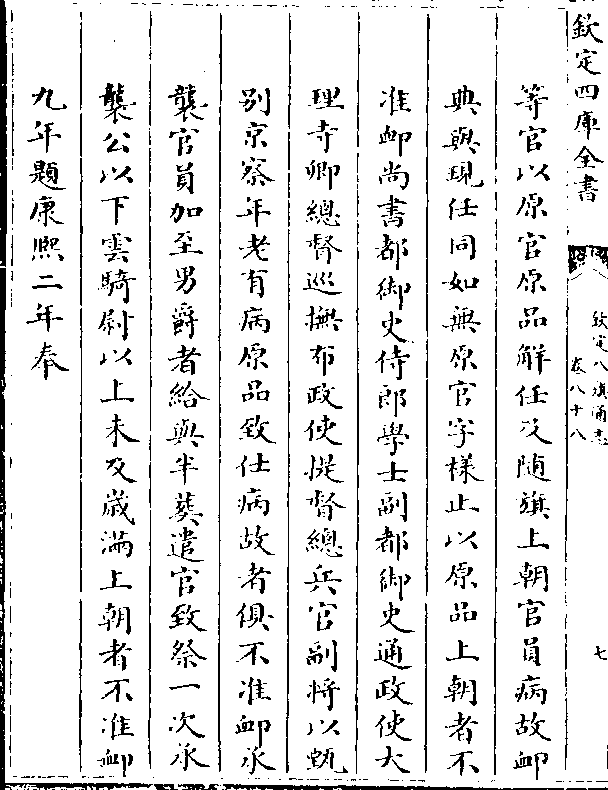 欽定四庫全書
欽定八旗通志
卷八十八
七
等官以原官原品解任及随旗上朝官員病故䘏
典與現任同如無原官字樣止以原品上朝者不
准䘏尚書都御史侍郎學士副都御史通政使大
理寺卿總督巡撫布政使提督總兵官副將以甄
别京察年老有病原品致仕病故者俱不准䘏承
襲官員加至男爵者給與半葬遣官致祭一次承
襲公以下雲騎尉以上未及歲滿上朝者不准䘏
九年題康熙二年奉